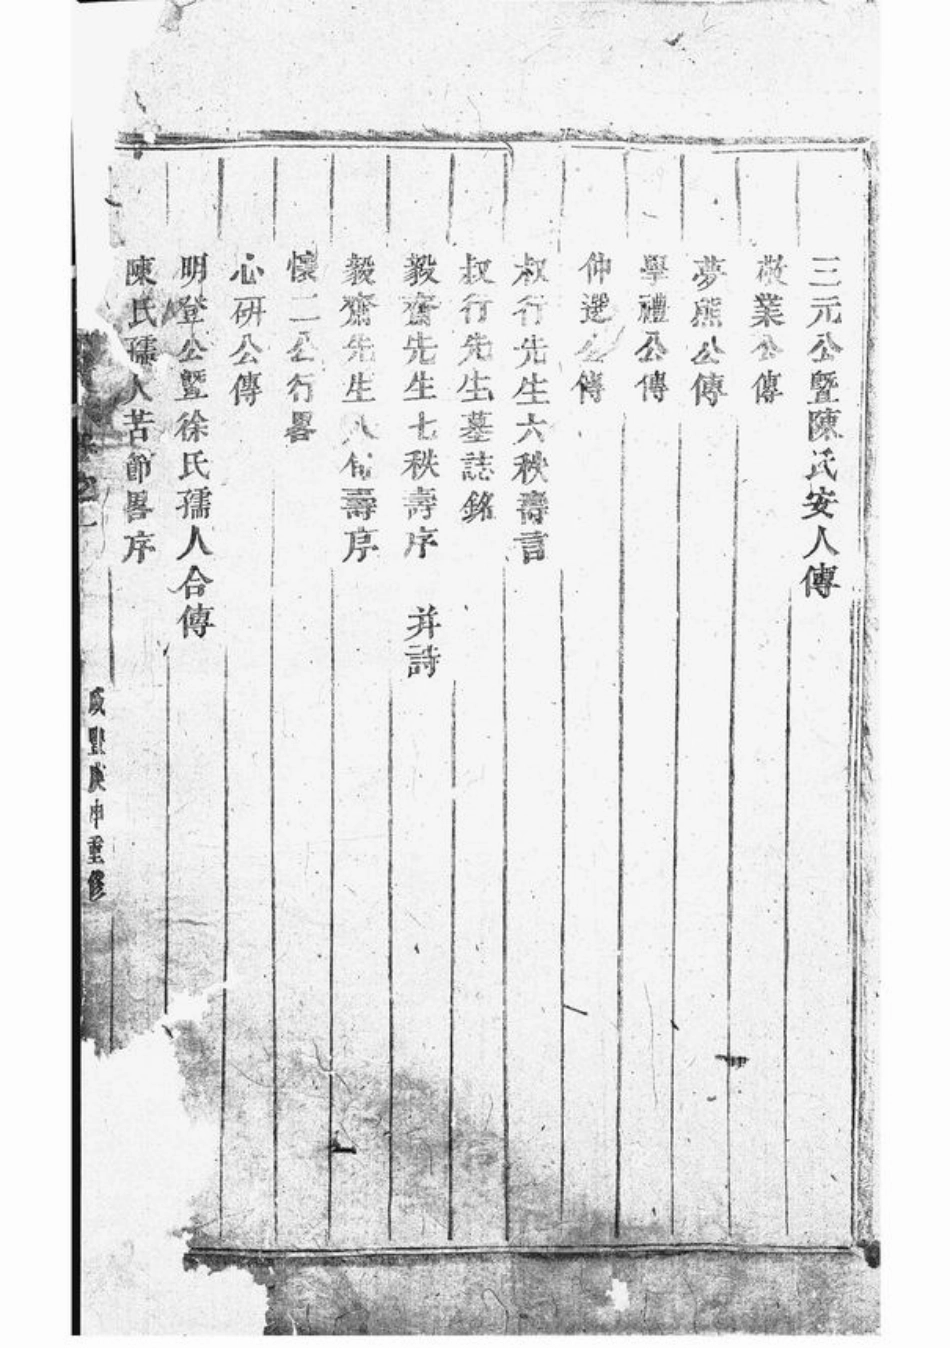 三元公暨陳氏安人傳
敬業公傳
夢熊公傳
學禮公傳
仲選公傳
叔行先生六秩壽言
叔行先生墓誌銘
毅齋先生七秩壽序 并詩
毅齋先生八旬壽序
懷二公行畧
心研公傳
明登公暨徐氏孺人合傳
陳氏孺人苦節畧序
咸豐庚申重修